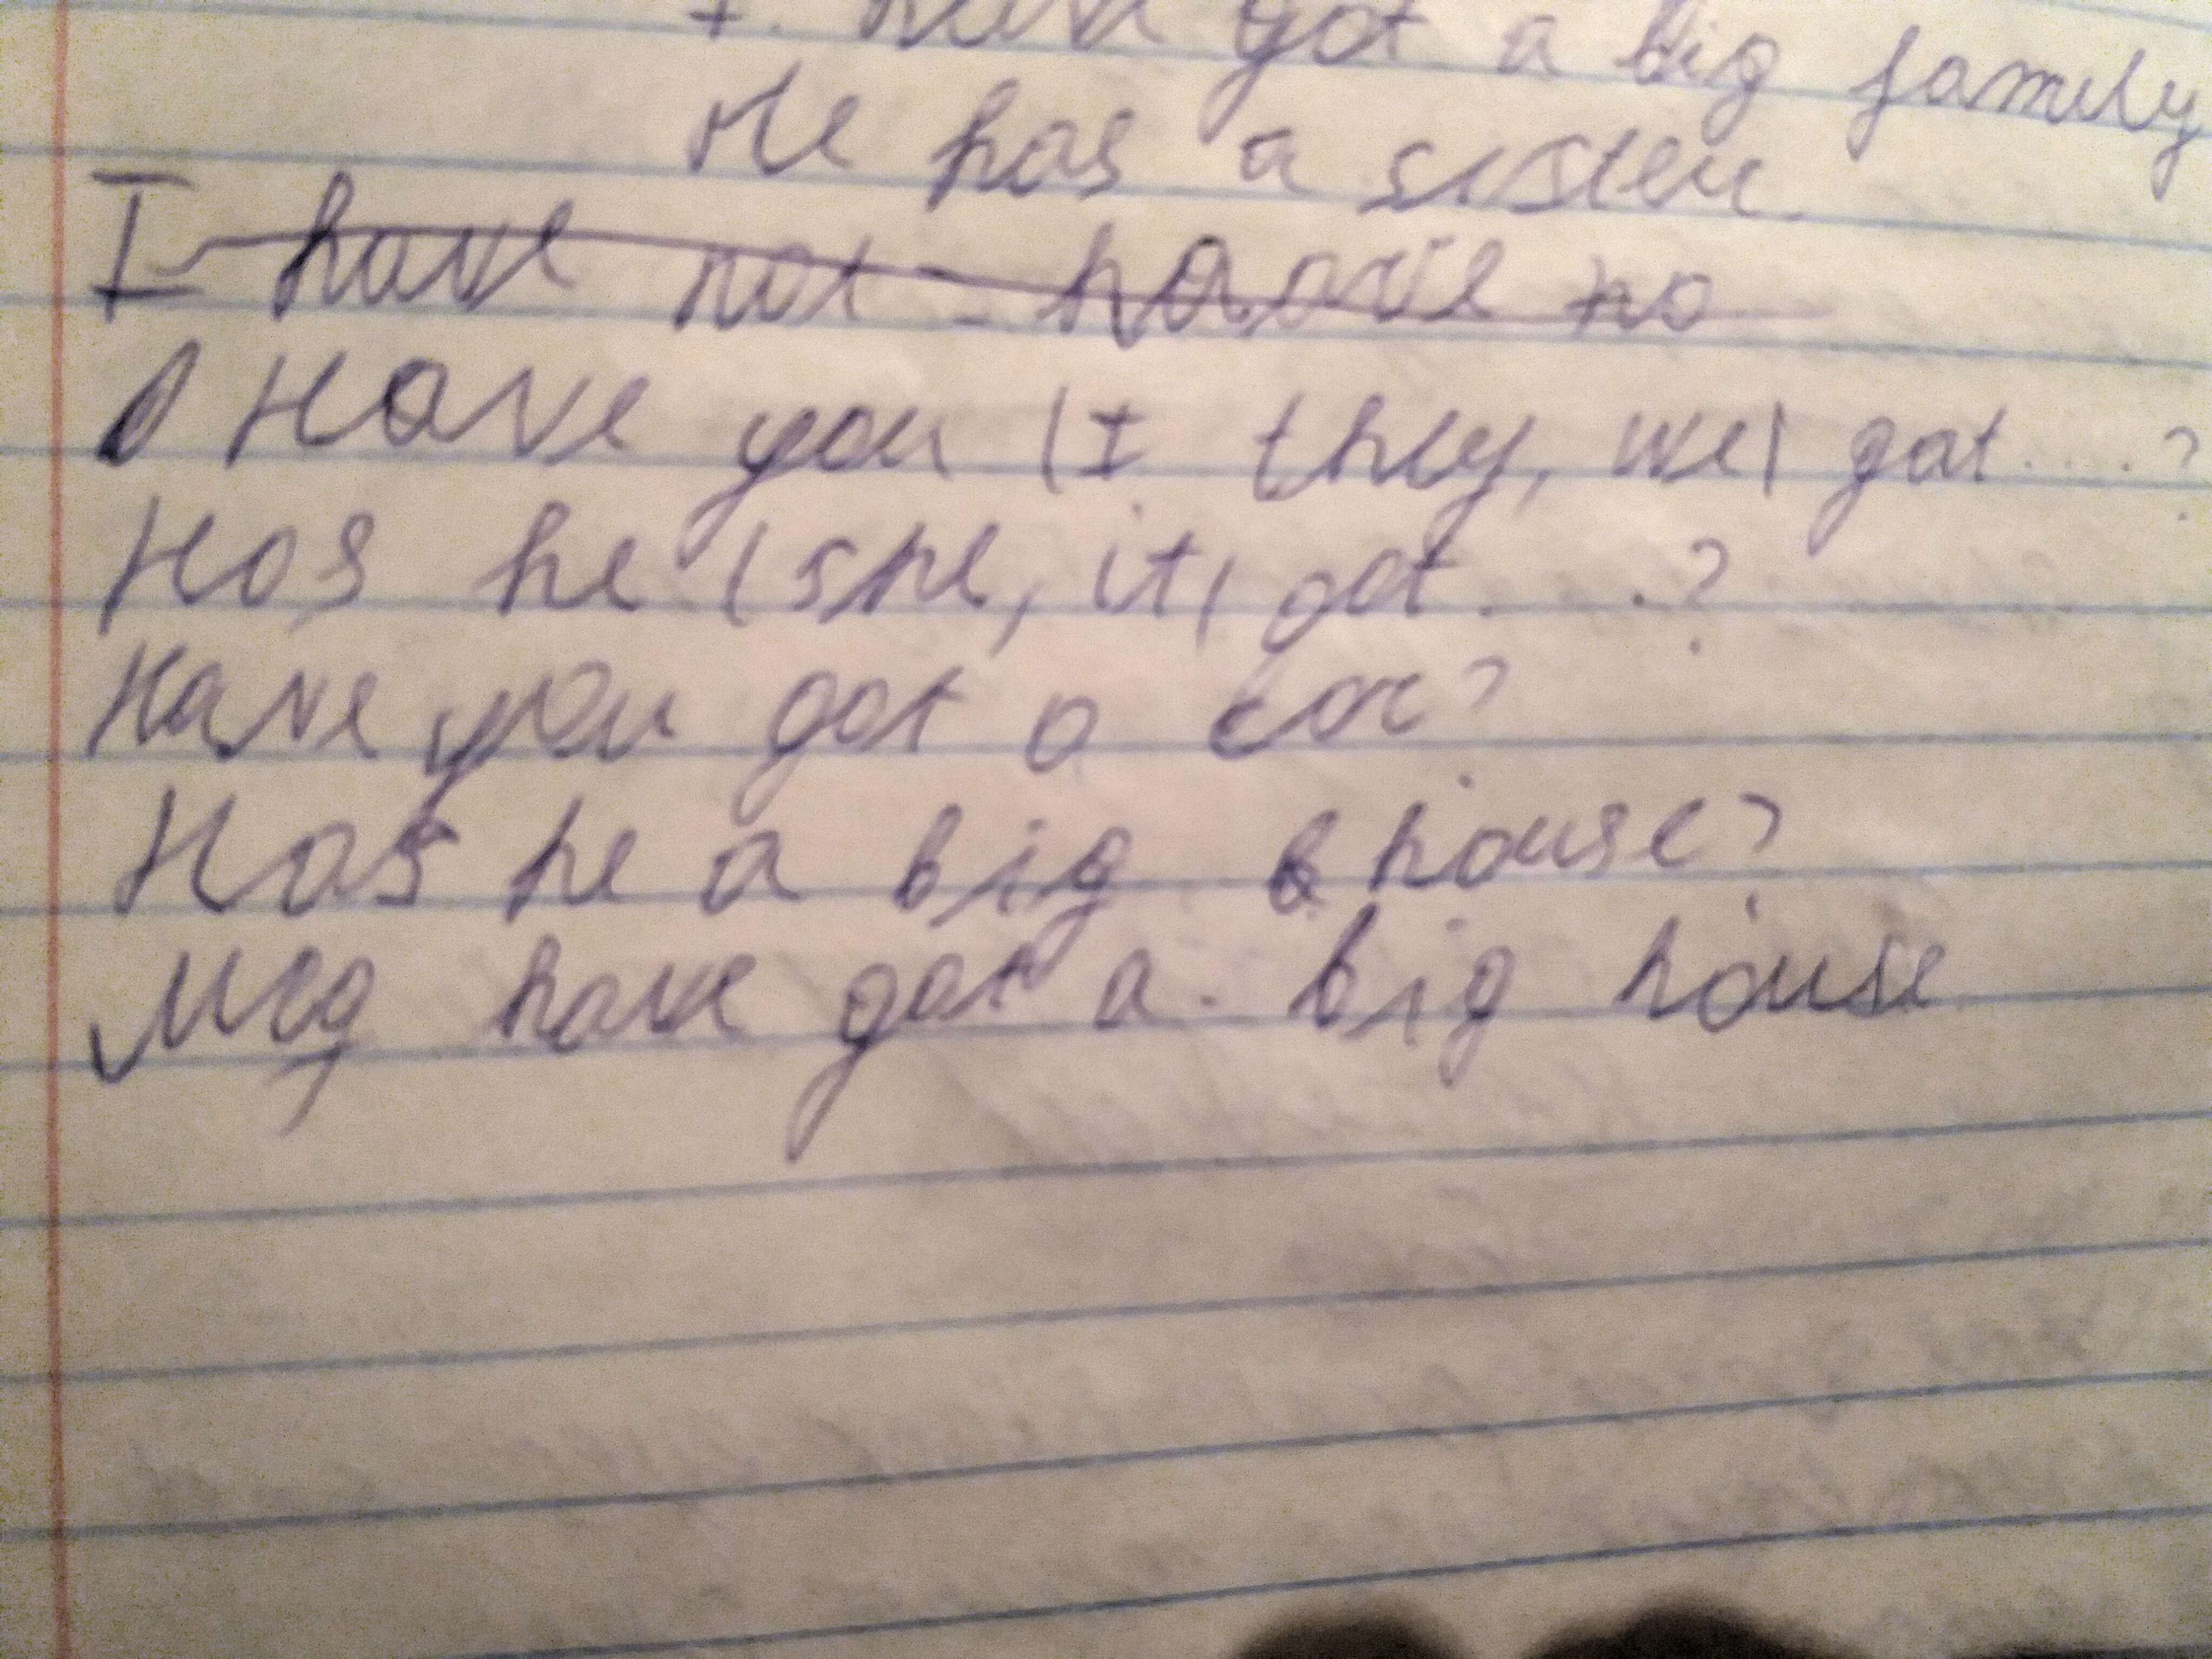 I have got a big family
He has a sister.
I have not - haave no
Have you (I they, we) got....?
Has he (she, it) got....?
Have you got a car?
Has he a big house?
have got a big house